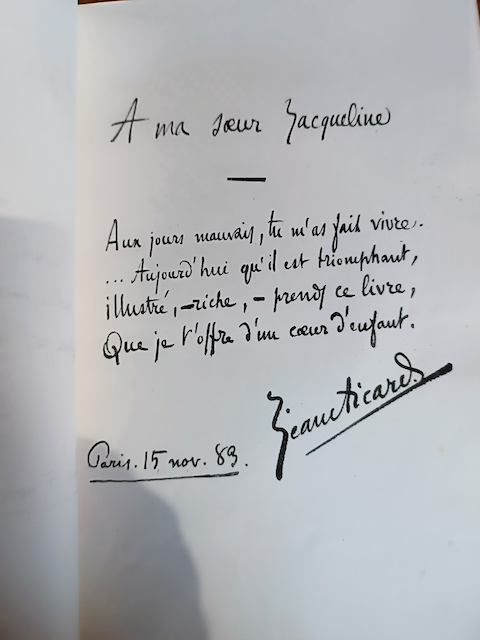 A ma sœur Jacqueline
Aux jours mauvais, tu m'as fait vivre.
... Aujourd'hui qu'il est triomphant,
illustré, – riche, – prends ce livre,
Que je t'offre d'un cœur d'enfant.
Jean Aicard
Paris. 15 nov. 89.